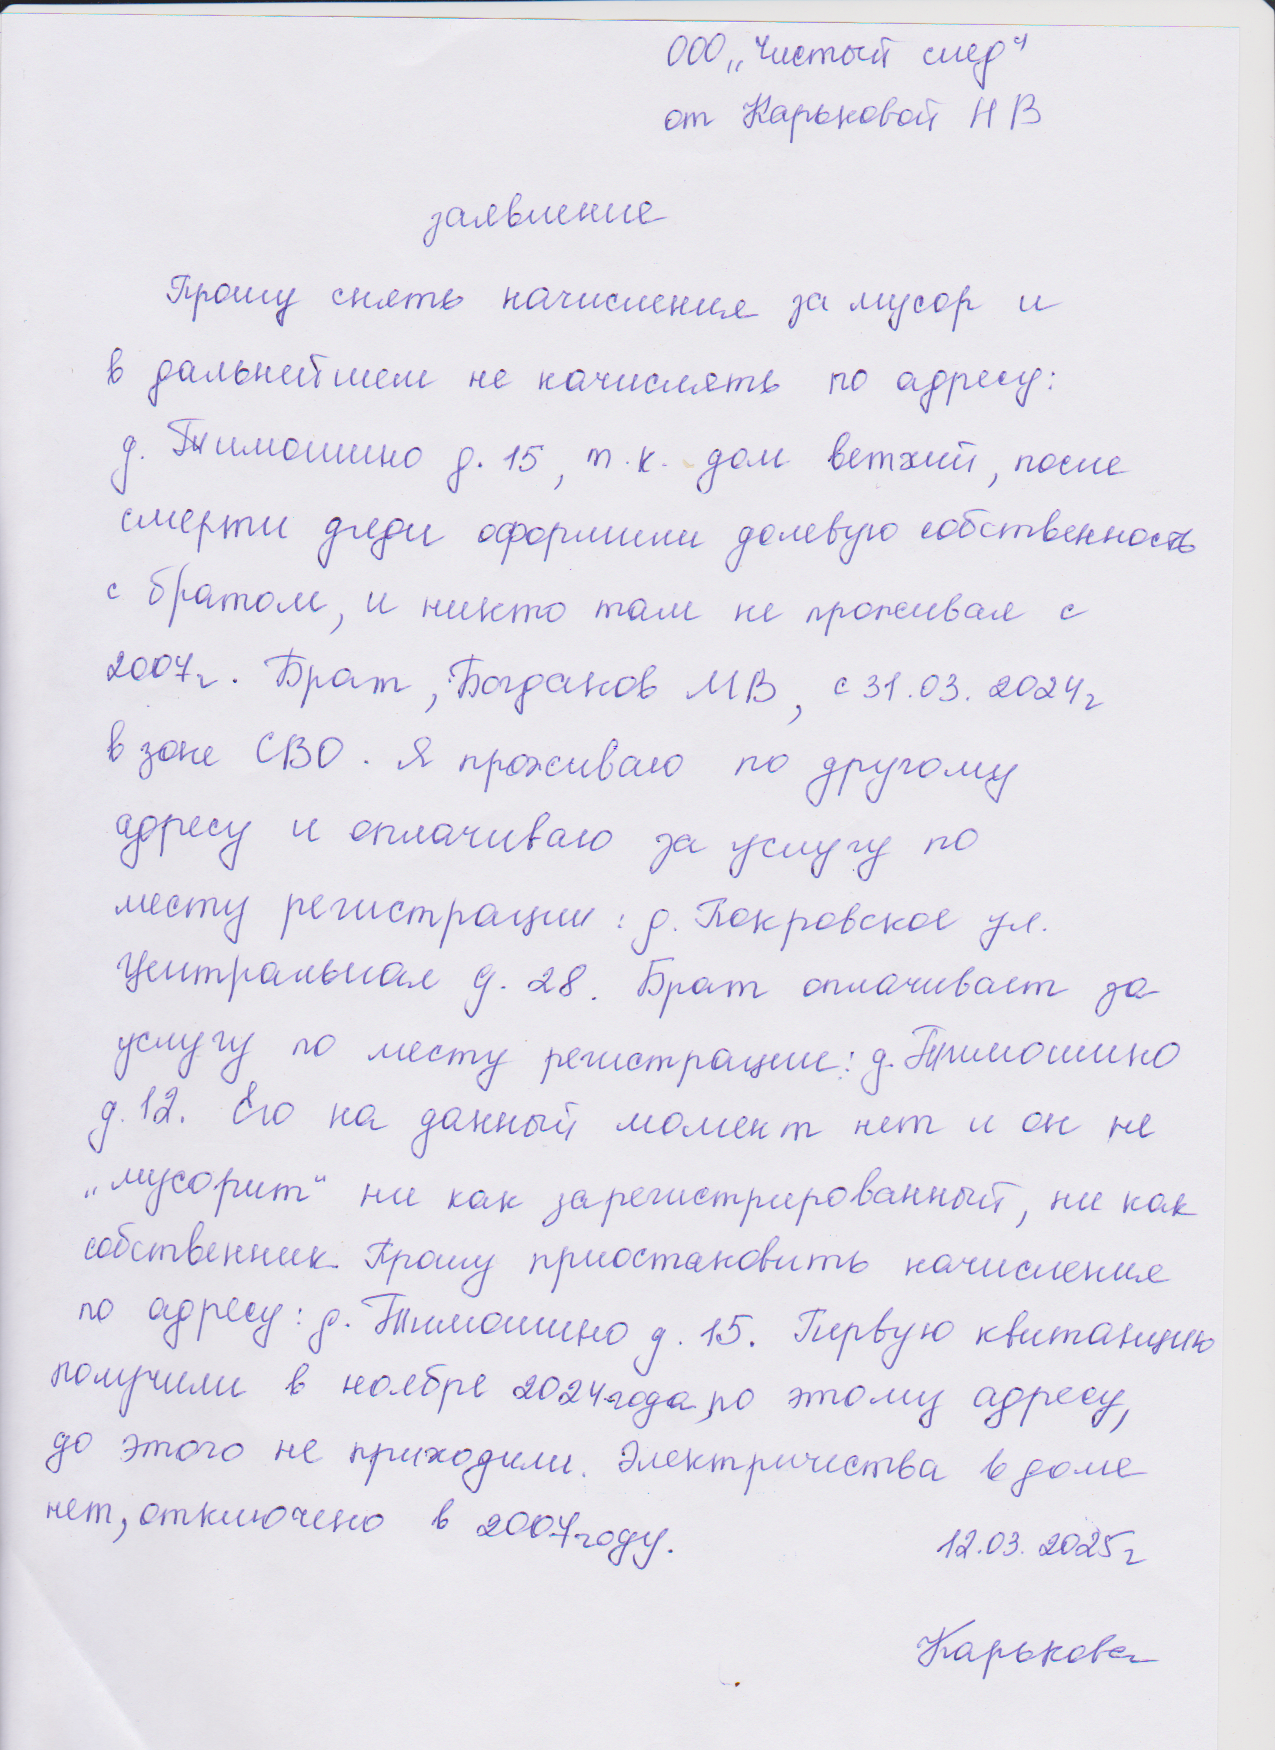 ООО „Чистый след"
от Карьковой Н В
заявление
Прошу снять начисления за мусор и
в дальнейшем не начислять по адресу:
д. Тимошино д. 15, т.к. дом ветхий, после
смерти дяди оформили долевую собственность
с братом, и никто там не проживал с
2007г. Брат, Богданов МВ, с 31.03.2024г
в зоне СВО. Я проживаю по другому
адресу и оплачиваю за услугу по
месту регистрации: д. Покровское ул.
Центральная д. 28. Брат оплачивает за
услугу по месту регистрации: д. Тимошино
д. 12. Его на данный момент нет и он не
„мусорит" ни как зарегистрированный, ни как
собственник. Прошу приостановить начисления
по адресу: д. Тимошино д. 15. Первую квитанцию
получили в ноябре 2024года по этому адресу,
до этого не приходили. Электричества в доме
нет, отключено в 2007году.
12.03.2025г
Карькова